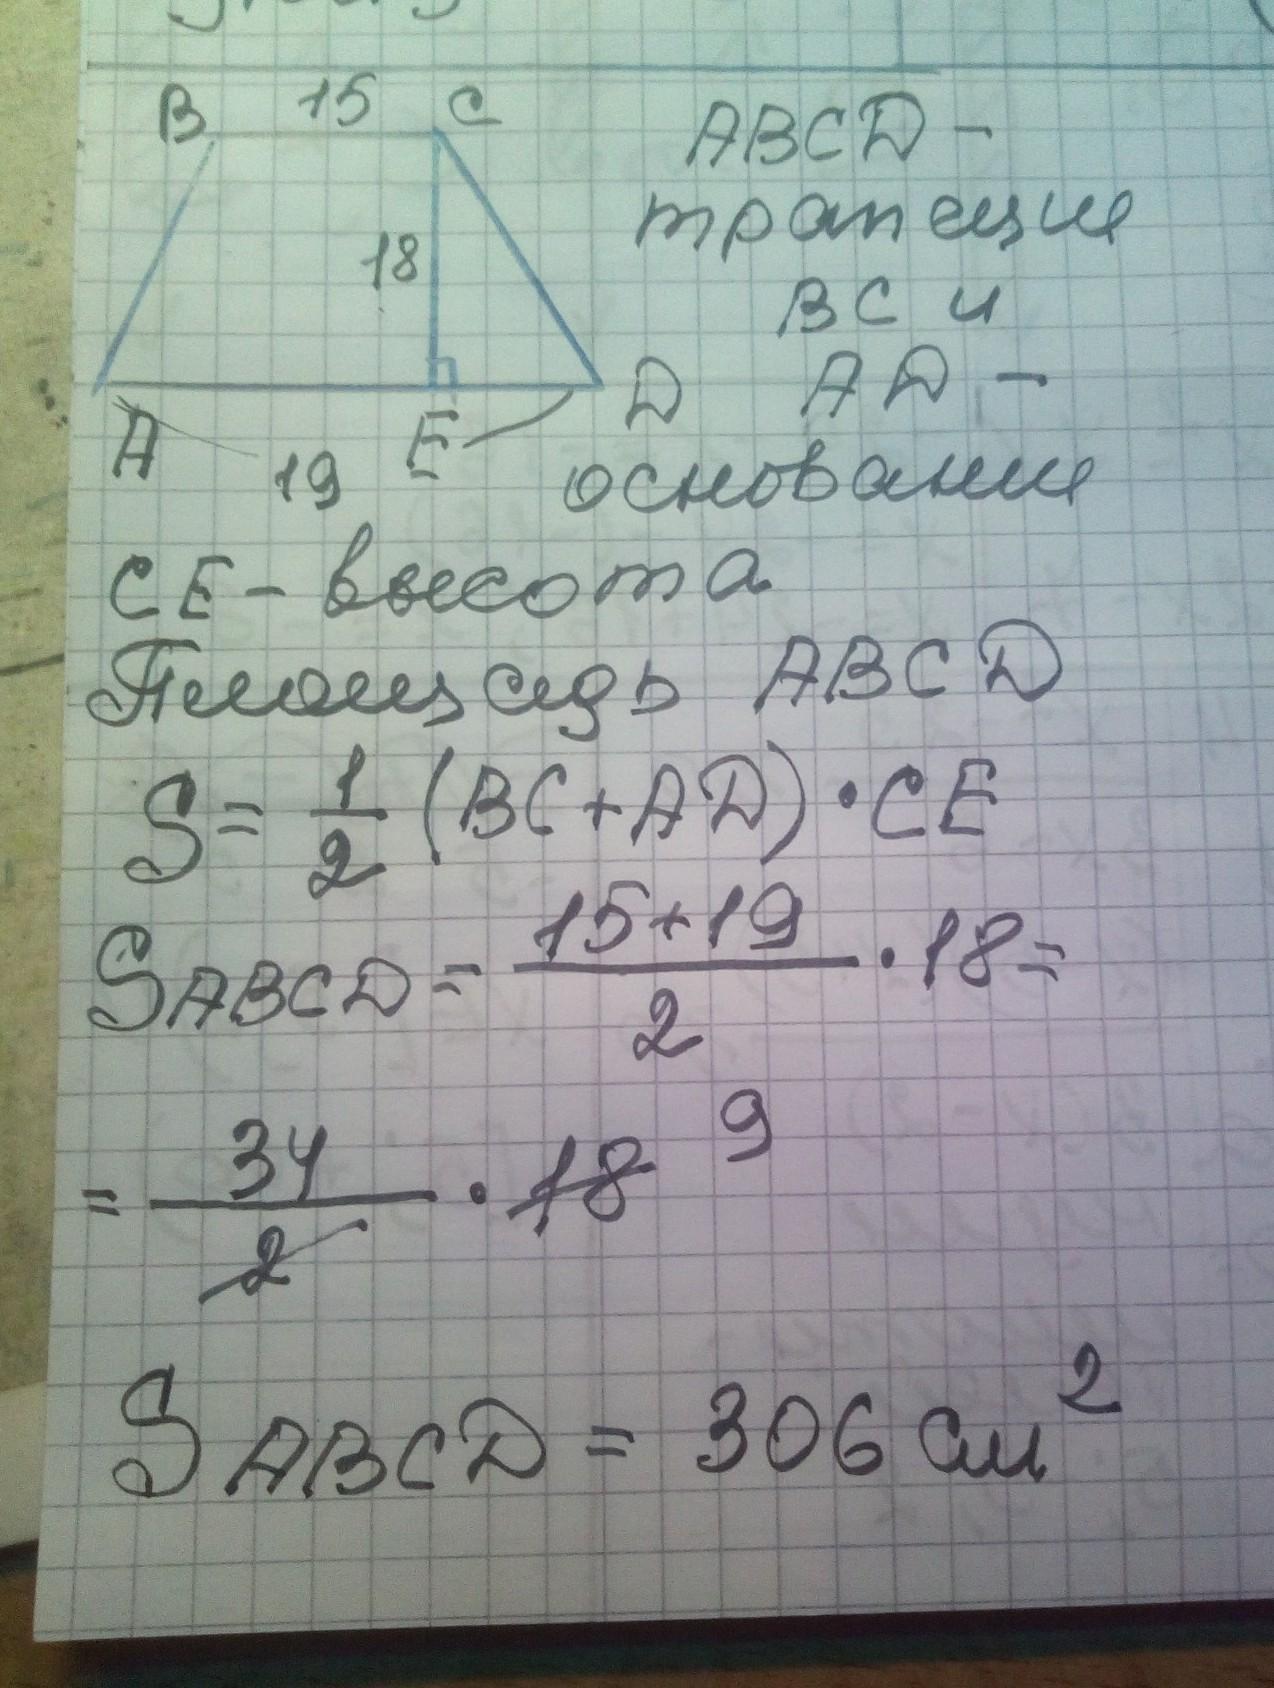 B 15 C
ABCD -
трапеции
18
BC и
D AD -
A 19 E
основании
CE - высота
Площадь ABCD
S = 1/2 (BC + AD) · CE
SABCD = 15+19/2 · 18 =
9
= 34/2 · 18
SABCD = 306 см²